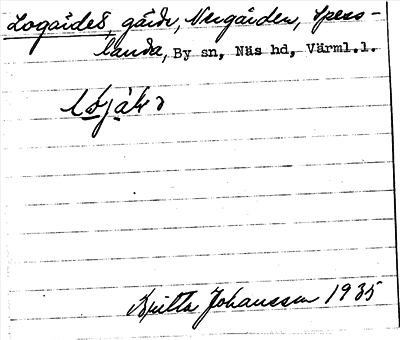 Logårdes, gård, Nergården, Spess-
landa, By sn, Näs hd, Värml.l.
Britta Johansson 1935